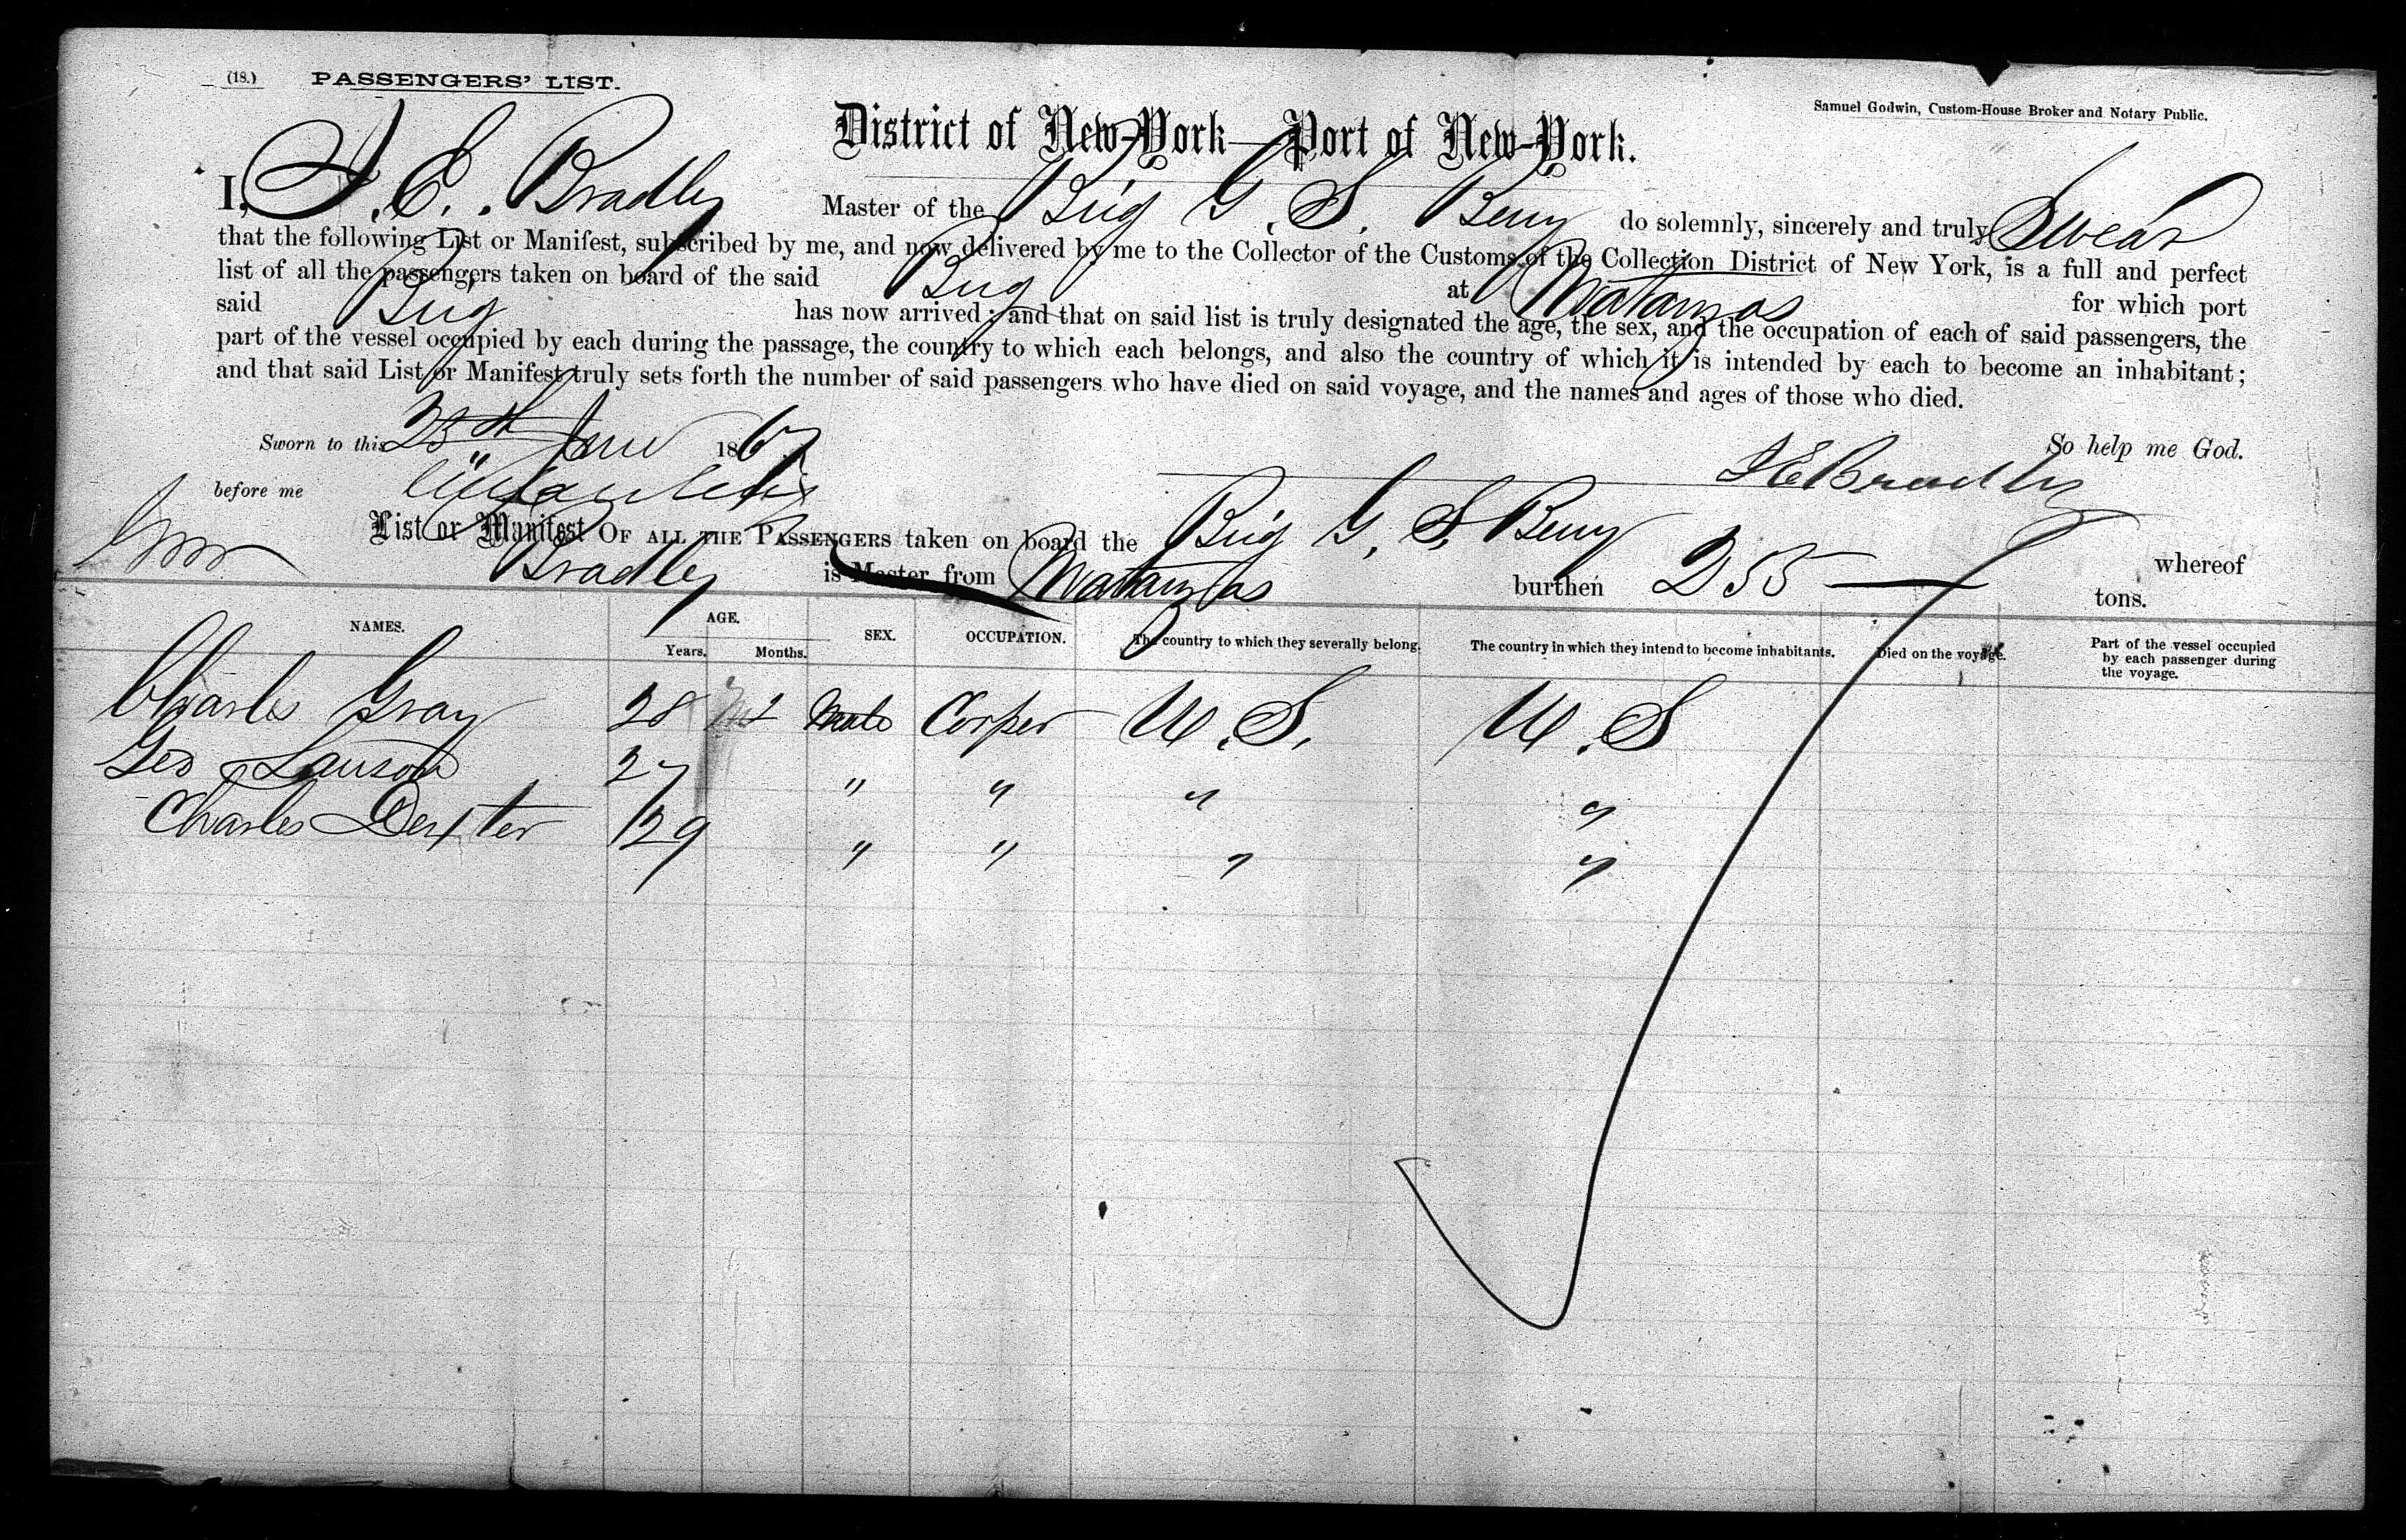 (18.) PASSENGERS' LIST.
Samuel Godwin, Custom-House Broker and Notary Public.
District of New-York—Port of New-York.
I, J. E. Bradley Master of the Brig G. S. Berry do solemnly, sincerely and truly Swear
that the following List or Manifest, subscribed by me, and now delivered by me to the Collector of the Customs of the Collection District of New York, is a full and perfect
list of all the passengers taken on board of the said Brig at Matanzas for which port
said Brig has now arrived; and that on said list is truly designated the age, the sex, and the occupation of each of said passengers, the
part of the vessel occupied by each during the passage, the country to which each belongs, and also the country of which it is intended by each to become an inhabitant;
and that said List or Manifest truly sets forth the number of said passengers who have died on said voyage, and the names and ages of those who died.
Sworn to this 25th June 1867 So help me God.
before me J E Bradley
List or Manifest OF ALL THE PASSENGERS taken on board the Brig G. S. Berry whereof
Bradley is Master from Matanzas burthen 255 — tons.
NAMES. AGE. Years. Months. SEX. OCCUPATION. The country to which they severally belong. The country in which they intend to become inhabitants. Died on the voyage. Part of the vessel occupied by each passenger during the voyage.
Charles Gray 28 Male Corper U.S. U.S
Geo Lawson 27 " " " "
Charles Dexter 29 " " " "